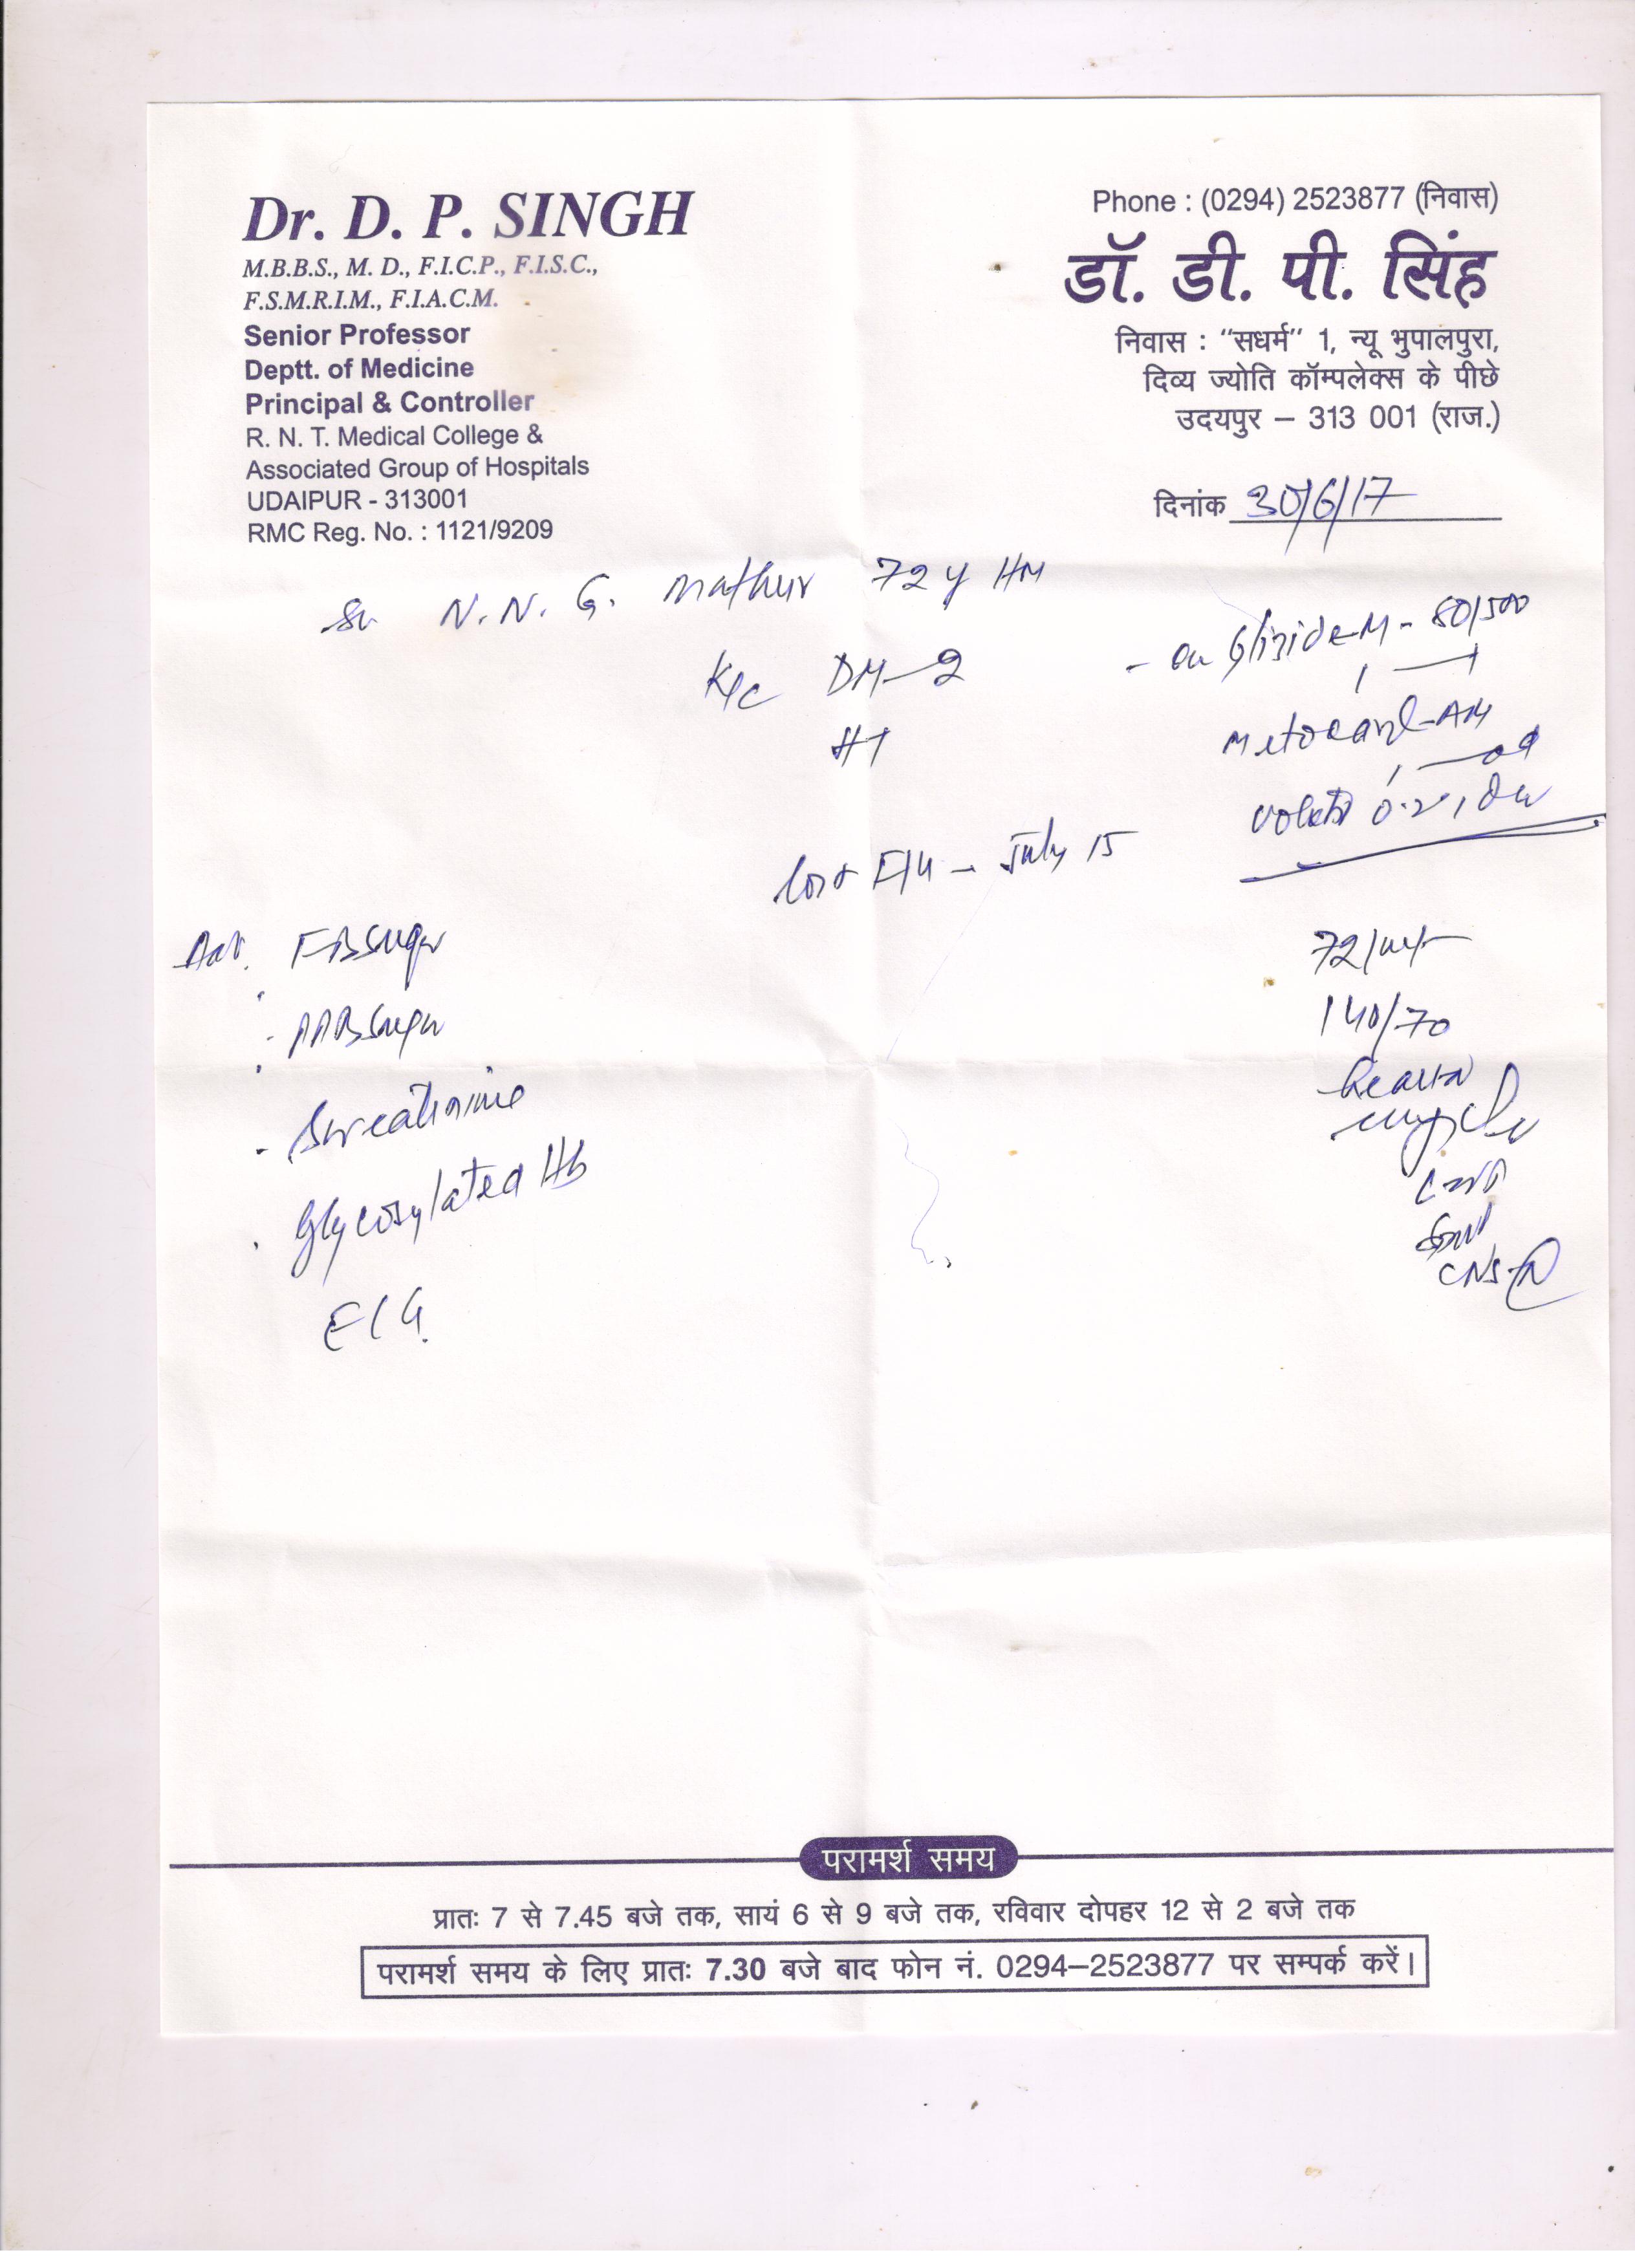 Dr. D. P. SINGH
M.B.B.S., M. D., F.I.C.P., F.I.S.C.,
F.S.M.R.I.M., F.I.A.C.M.
Senior Professor
Deptt. of Medicine
Principal & Controller
R. N. T. Medical College &
Associated Group of Hospitals
UDAIPUR - 313001
RMC Reg. No. : 1121/9209
Phone : (0294) 2523877 (निवास)
डॉ. डी. पी. सिंह
निवास : “सधर्म” 1, न्यू भुपालपुरा,
दिव्य ज्योति कॉम्पलेक्स के पीछे
उदयपुर – 313 001 (राज.)
दिनांक 30/6/17
N. N. G. Mathur 72 y HM
K/c DM-2
HT
- on Glizide-M - 80/500
Metocard-AM
0.2,
last F/U - July 15
Adv. FBSugar
- PPBSugar
- Sr creatinine
Glycosylated Hb
ECG.
72/
140/70
CNS-N
परामर्श समय
प्रातः 7 से 7.45 बजे तक, सायं 6 से 9 बजे तक, रविवार दोपहर 12 से 2 बजे तक
परामर्श समय के लिए प्रातः 7.30 बजे बाद फोन नं. 0294–2523877 पर सम्पर्क करें।